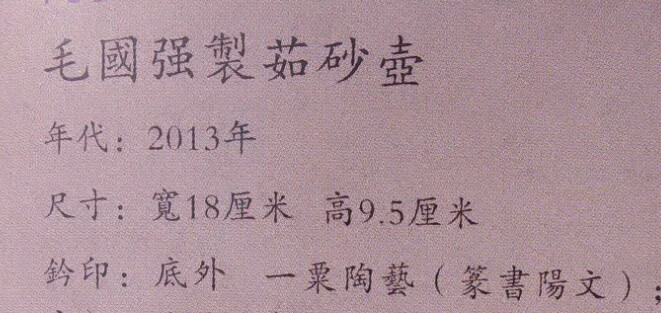 毛國强製茹砂壺
年代：2013年
尺寸：寬18厘米 高9.5厘米
鈐印：底外 一粟陶藝（篆書陽文）；